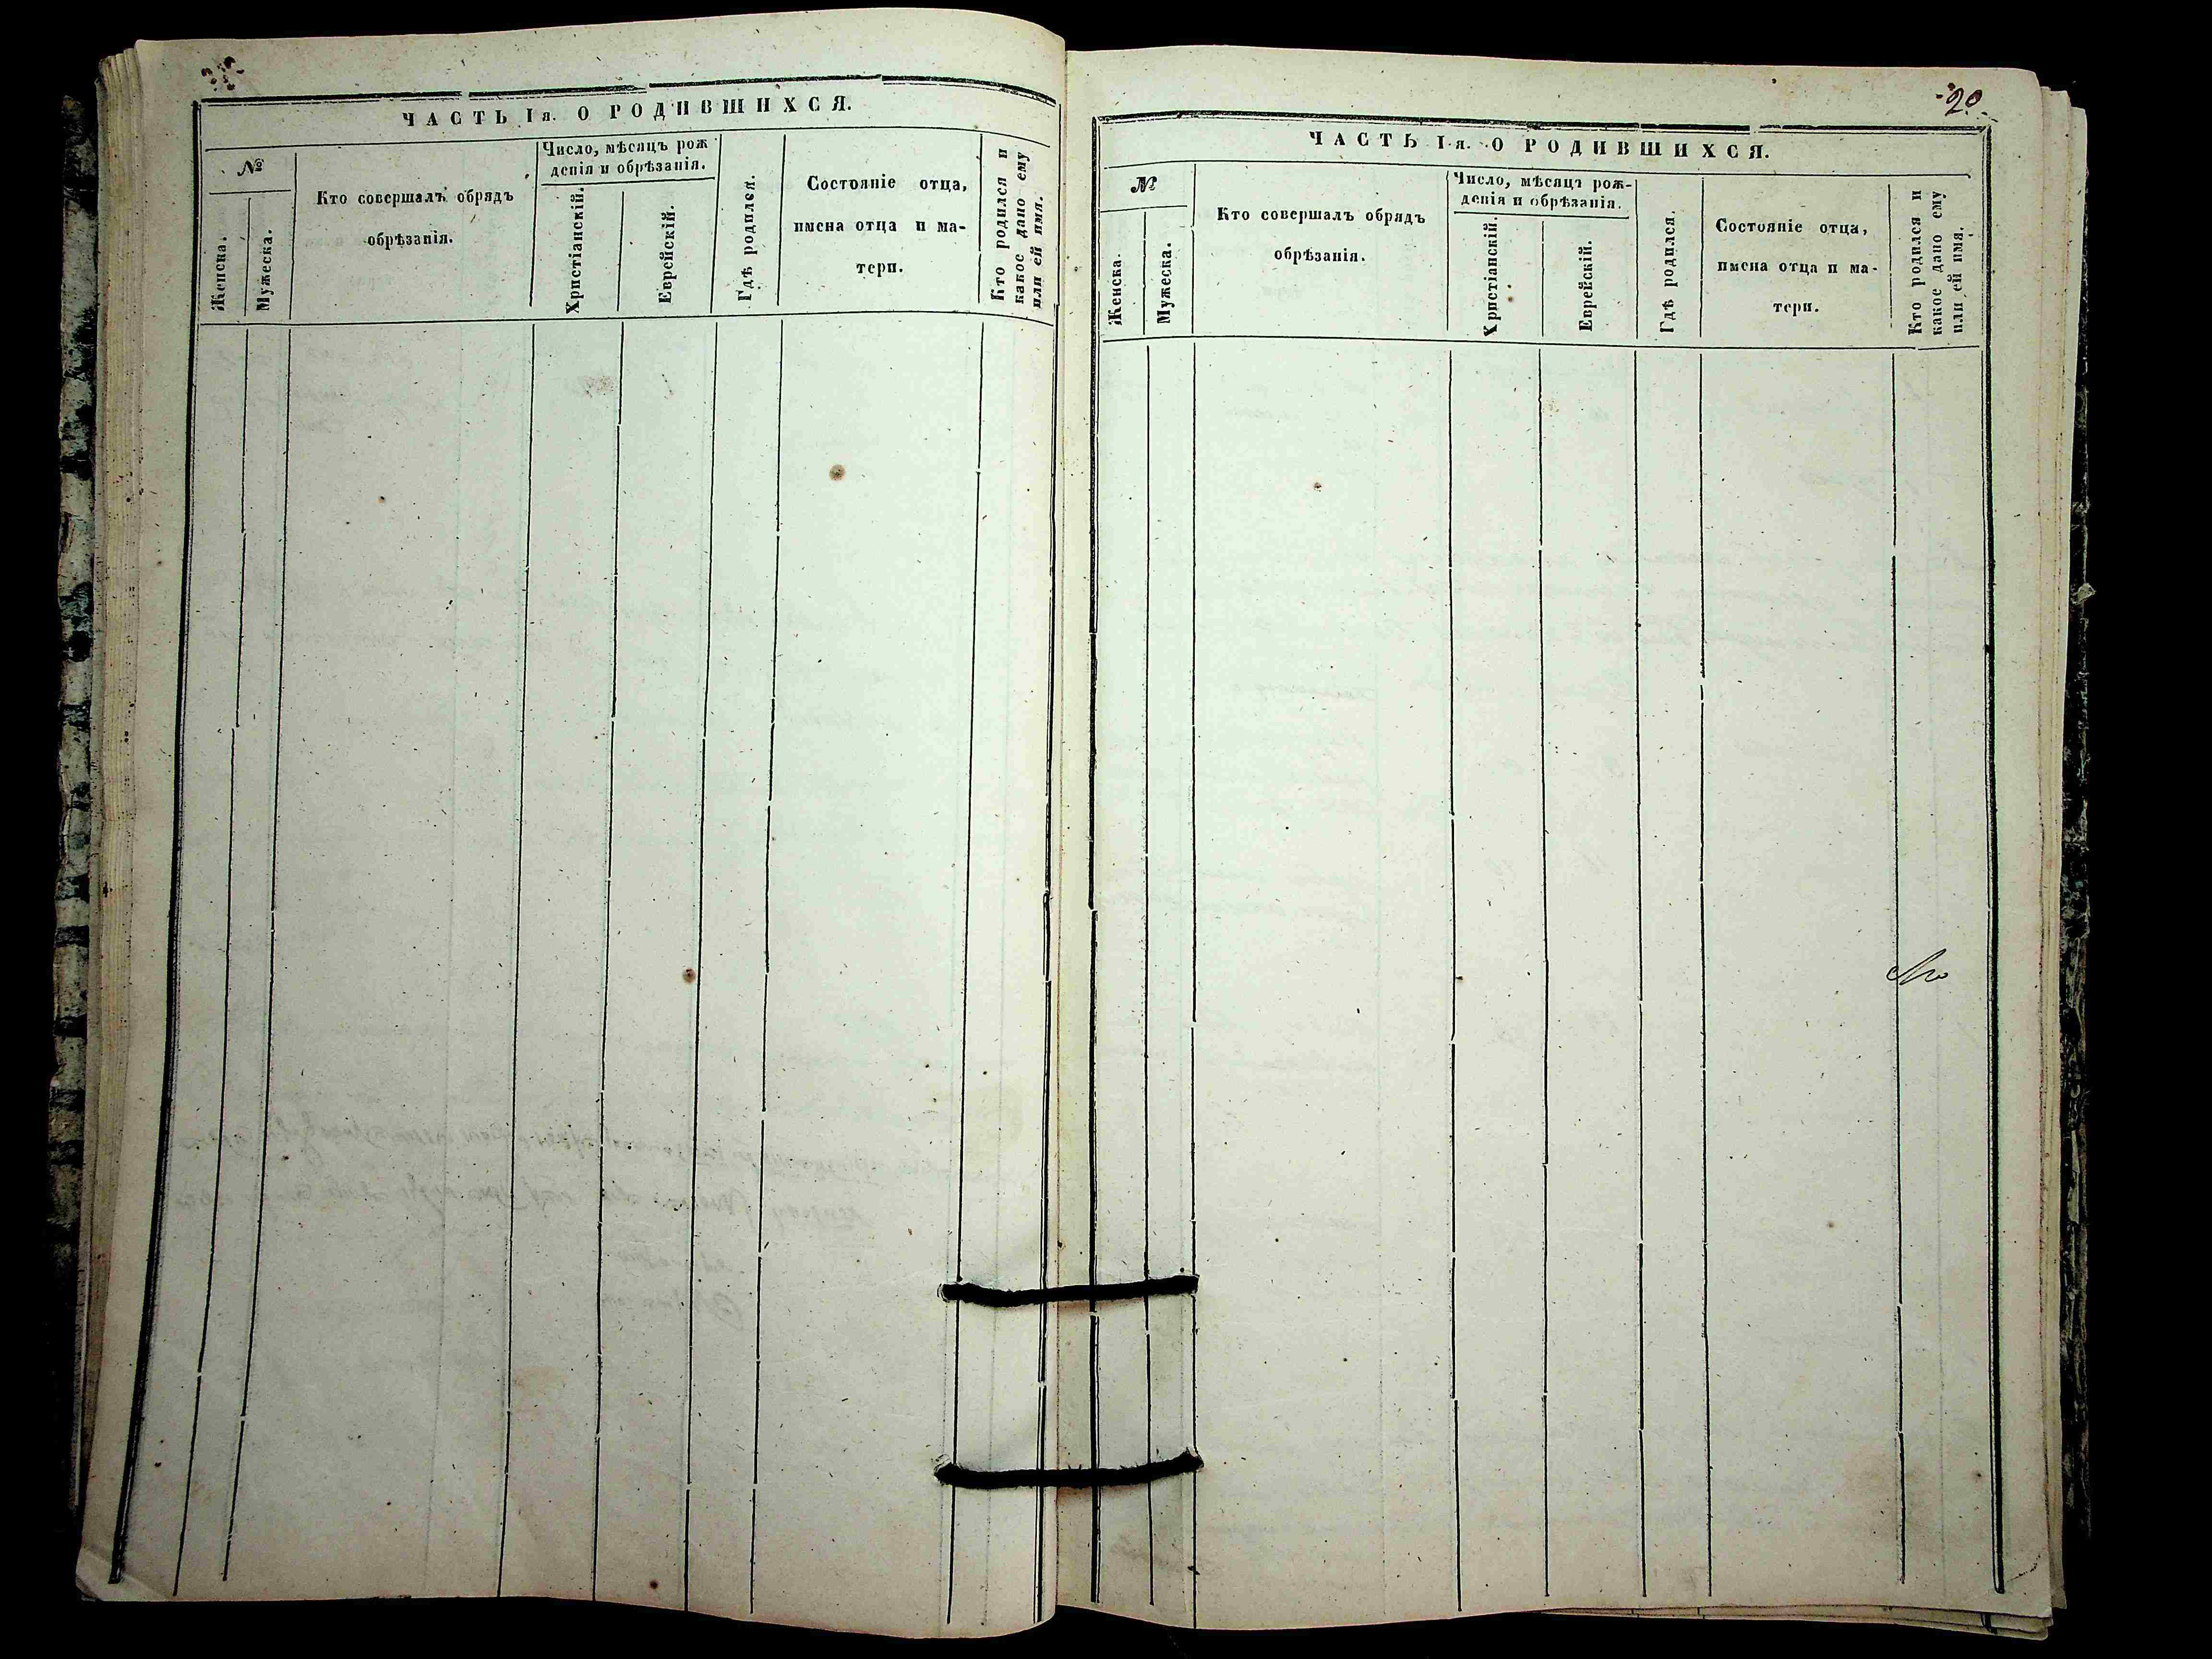 ЧАСТЬ Iя. О РОДИВШИХСЯ.
№
Женска.
Мужеска.
Кто совершалъ обрядъ
обрѣзанія.
Число, мѣсяцъ рож
денія и обрѣзанія.
Христіанскій.
Еврейскій.
Гдѣ родился.
Состояніе отца,
имена отца и ма-
тери.
Кто родился и
какое дано ему
или ей имя.
20.
ЧАСТЬ I-я. О РОДИВШИХСЯ.
№
Женска.
Мужеска.
Кто совершалъ обрядъ
обрѣзанія.
Число, мѣсяцъ рож-
денія и обрѣзанія.
Христіанскій.
Еврейскій.
Гдѣ родился.
Состояніе отца,
имена отца и ма-
тери.
Кто родился и
какое дано ему
или ей имя.